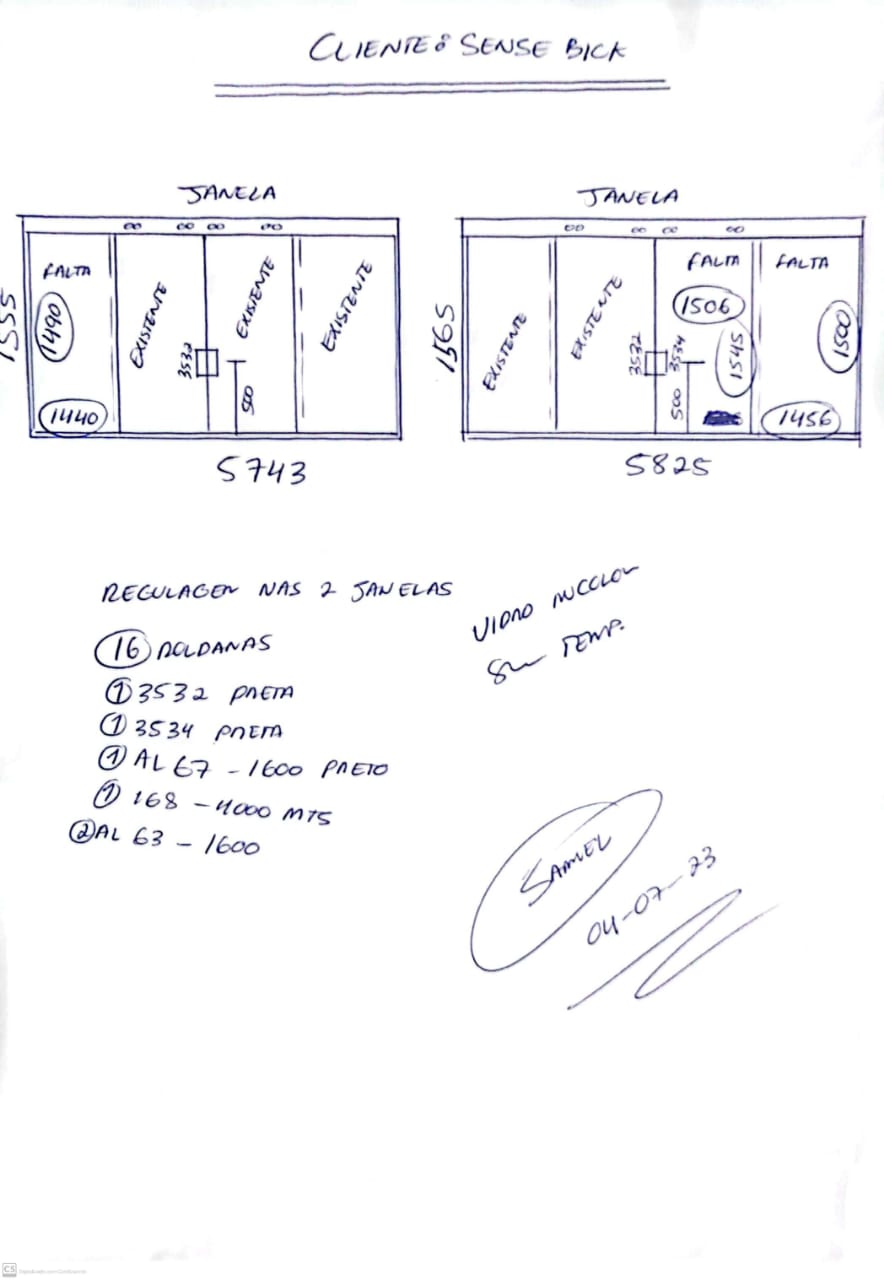 CLIENTE: SENSE BICK
JANELA
1555
FALTA
1490
1440
EXISTENTE
3532
EXISTENTE
500
EXISTENTE
5743
JANELA
1565
EXISTENTE
EXISTENTE
3532
FALTA
1506
3534
1545
500
FALTA
1500
1456
5825
REGULAGEM NAS 2 JANELAS
16 ROLDANAS
1 3532 PRETA
1 3534 PRETA
1 AL 67 - 1600 PRETO
1 168 - 4000 MTS
2 AL 63 - 1600
VIDRO INCOLOR
8mm TEMP.
SAMUEL
04-07-23
CS